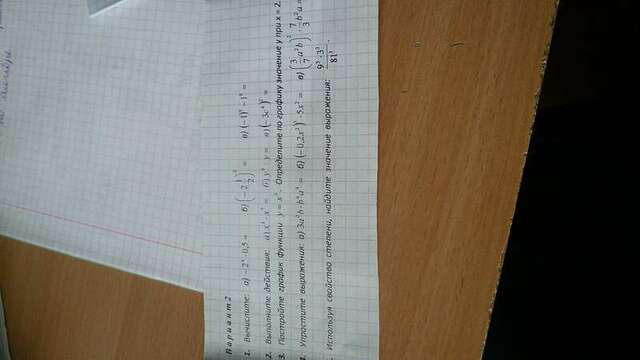 алгебре
Вариант 2
1. Вычислите: а) −2⁴·0,5 = б) (−2 1/2)² = в) (−1)⁹ − 1⁶ =
2. Выполните действия: а) x³·x⁷ = б) y⁸ : y = в) (−3c⁴)² =
3. Постройте график функции y = x². Определите по графику значение y при x = 2.
4. Упростите выражения: а) 3a²b·b⁴a³ = б) (−0,2x³)³·5x² = в) (3/7 a²b)²·7/3 b²a =
Используя свойство степени, найдите значение выражения: 9³·3³/81³.